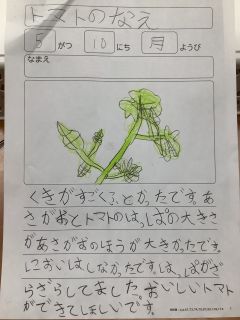 トマトのなえ
5 がつ 10 にち 月 ようび
なまえ
くきがすごくふとかったです。あ
さがおとトマトのはっぱの大きさ
があさがおのほうが大きかったです。
においはしなかったです。はっぱがざ
らざらしてました。おいしいトマト
ができてほしいです。